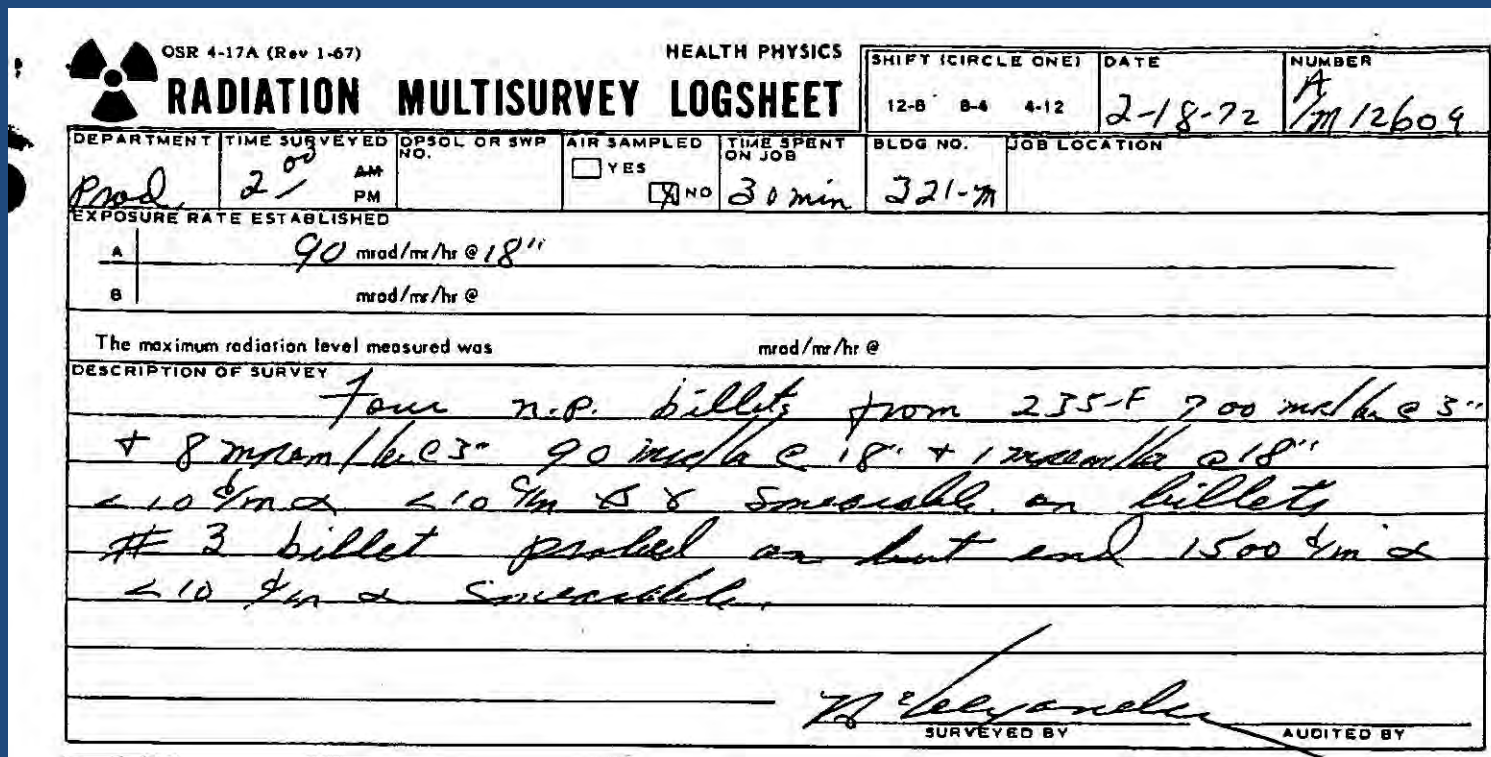 OSR 4-17A (Rev 1-67)
HEALTH PHYSICS
RADIATION MULTISURVEY LOGSHEET
SHIFT (CIRCLE ONE)
12-8 8-4 4-12
DATE
2-18-72
NUMBER
A/M 12609
DEPARTMENT
Prod.
TIME SURVEYED
2 00 AM PM
OPSOL OR SWP NO.
AIR SAMPLED
YES
X NO
TIME SPENT ON JOB
30 min
BLDG NO.
321-M
JOB LOCATION
EXPOSURE RATE ESTABLISHED
A 90 mrad/mr/hr @ 18"
B mrad/mr/hr @
The maximum radiation level measured was mrad/mr/hr @
DESCRIPTION OF SURVEY
Four n.p. billets from 235-F 700 mr/hr @ 3"
+ 8 mrem/hr @ 3" 90 mr/hr @ 18" + 1 mrem/hr @ 18"
<10 d/m α <10 c/m β γ smearable on billets
# 3 billet probed on but end 1500 d/m α
<10 d/m α smearable.
SURVEYED BY
AUDITED BY